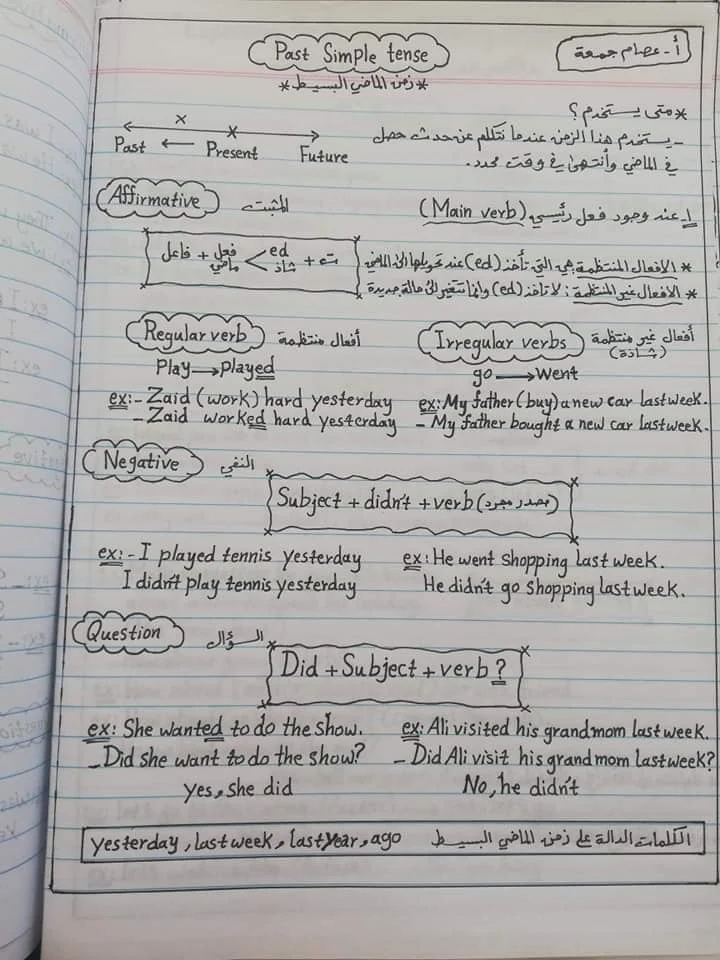 Past Simple tense
أ- عصام جمعة
*زمن الماضي البسيط*
*متى يستخدم؟
Past ← Present Future
- يستخدم هذا الزمن عندما نتكلم عن حدث حصل
في الماضي وأنتهى في وقت محدد.
Affirmative المثبت
1- عند وجود فعل رئيسي (Main verb)
فاعل + فعل ماضي < ed شاذ + ت
* الافعال المنتظمة هي التي تأخذ (ed) عند تحويلها الى الماضي
* الافعال غير المنتظمة: لا تاخذ (ed) وانما تتغير الى حالة جديدة
Regular verb أفعال منتظمة
Play → Played
ex:- Zaid (work) hard yesterday
- Zaid worked hard yesterday
Irregular verbs أفعال غير منتظمة (شاذة)
go → Went
ex: My father (buy) a new car last week.
- My father bought a new car last week.
Negative النفي
Subject + didn't + verb (مصدر مجرد)
ex:- I played tennis yesterday
I didn't play tennis yesterday
ex: He went shopping last week.
He didn't go shopping last week.
Question السؤال
Did + Subject + verb ?
ex: She wanted to do the show.
- Did she want to do the show?
yes, she did
ex: Ali visited his grand mom last week.
- Did Ali visit his grand mom last week?
No, he didn't
الكلمات الدالة على زمن الماضي البسيط yesterday, last week, last year, ago